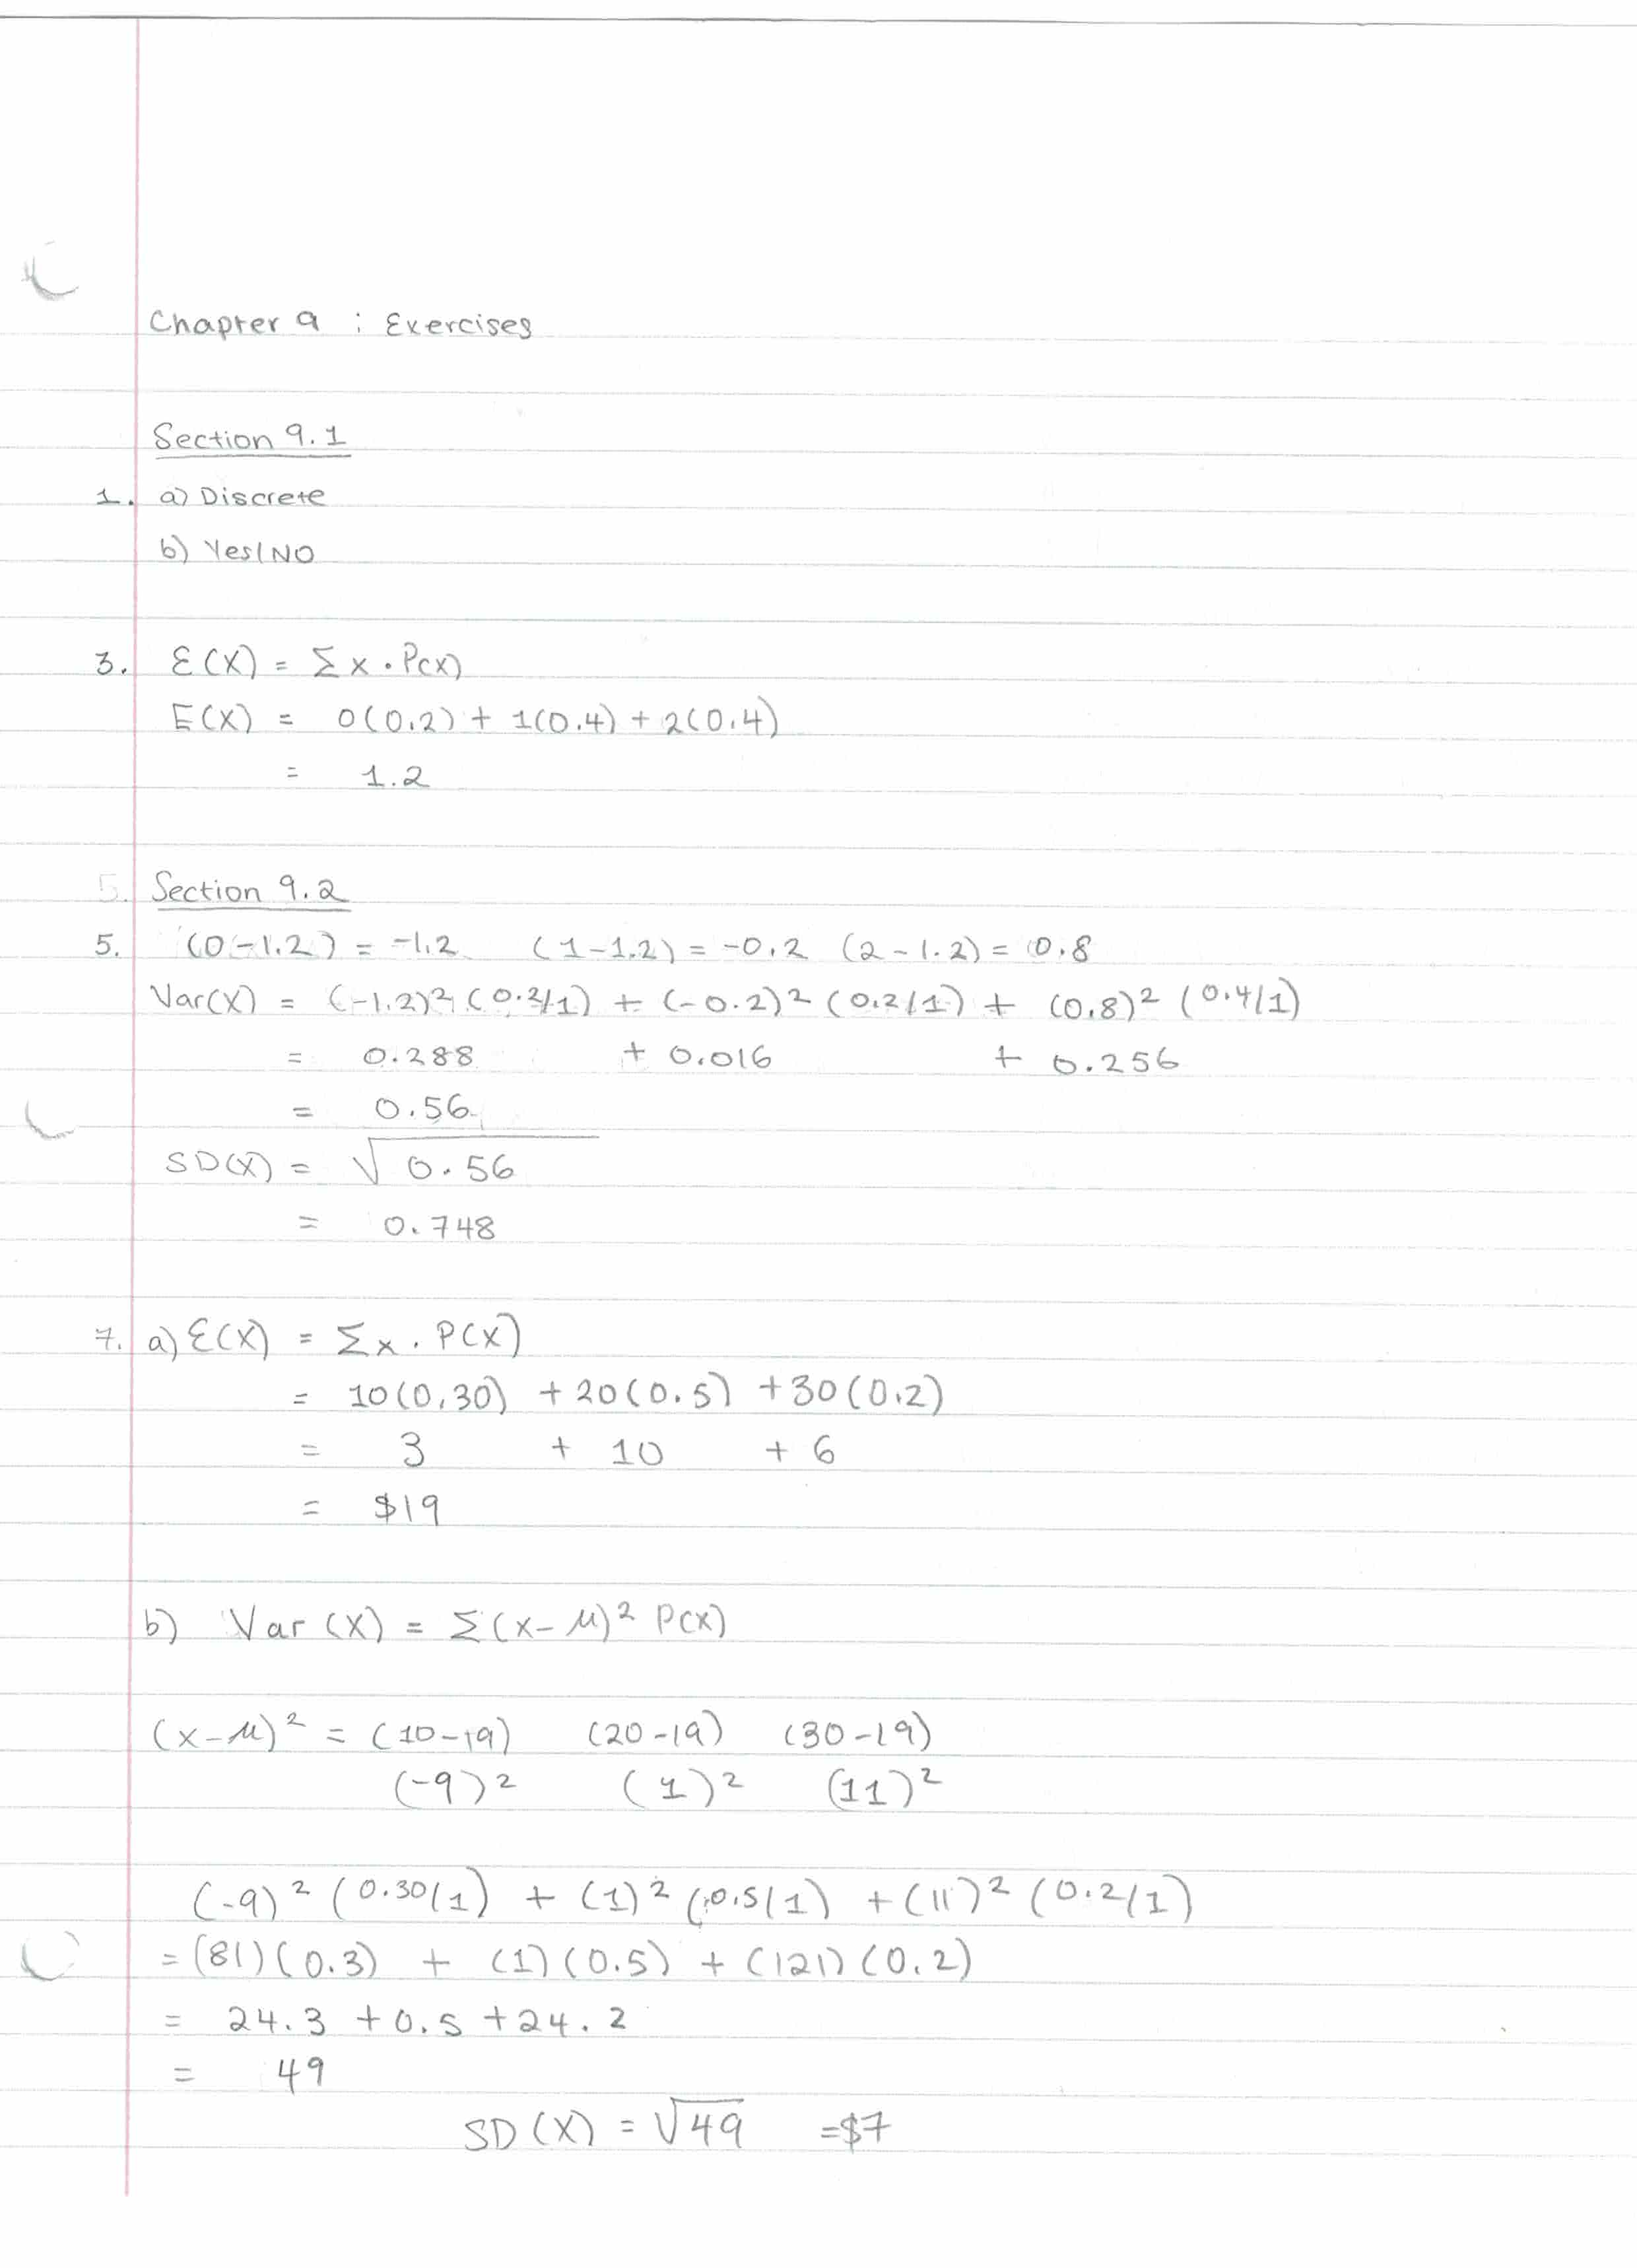 Chapter 9 : Exercises
Section 9.1
1. a) Discrete
b) Yes/NO
3. E(X) = Σ x · P(x)
E(X) = 0(0.2) + 1(0.4) + 2(0.4)
= 1.2
5. Section 9.2
5. (0-1.2) = -1.2 (1-1.2) = -0.2 (2-1.2) = 0.8
Var(X) = (-1.2)² (0.2/1) + (-0.2)² (0.2/1) + (0.8)² (0.4/1)
= 0.288 + 0.016 + 0.256
= 0.56
SD(X) = √0.56
= 0.748
7. a) E(X) = Σx · P(X)
= 10(0.30) + 20(0.5) + 30(0.2)
= 3 + 10 + 6
= $19
b) Var (X) = Σ(x-μ)² P(x)
(x-μ)² = (10-19) (20-19) (30-19)
(-9)² (1)² (11)²
(-9)² (0.30/1) + (1)² (0.5/1) + (11)² (0.2/1)
= (81)(0.3) + (1)(0.5) + (121)(0.2)
= 24.3 + 0.5 + 24.2
= 49
SD (X) = √49 = $7